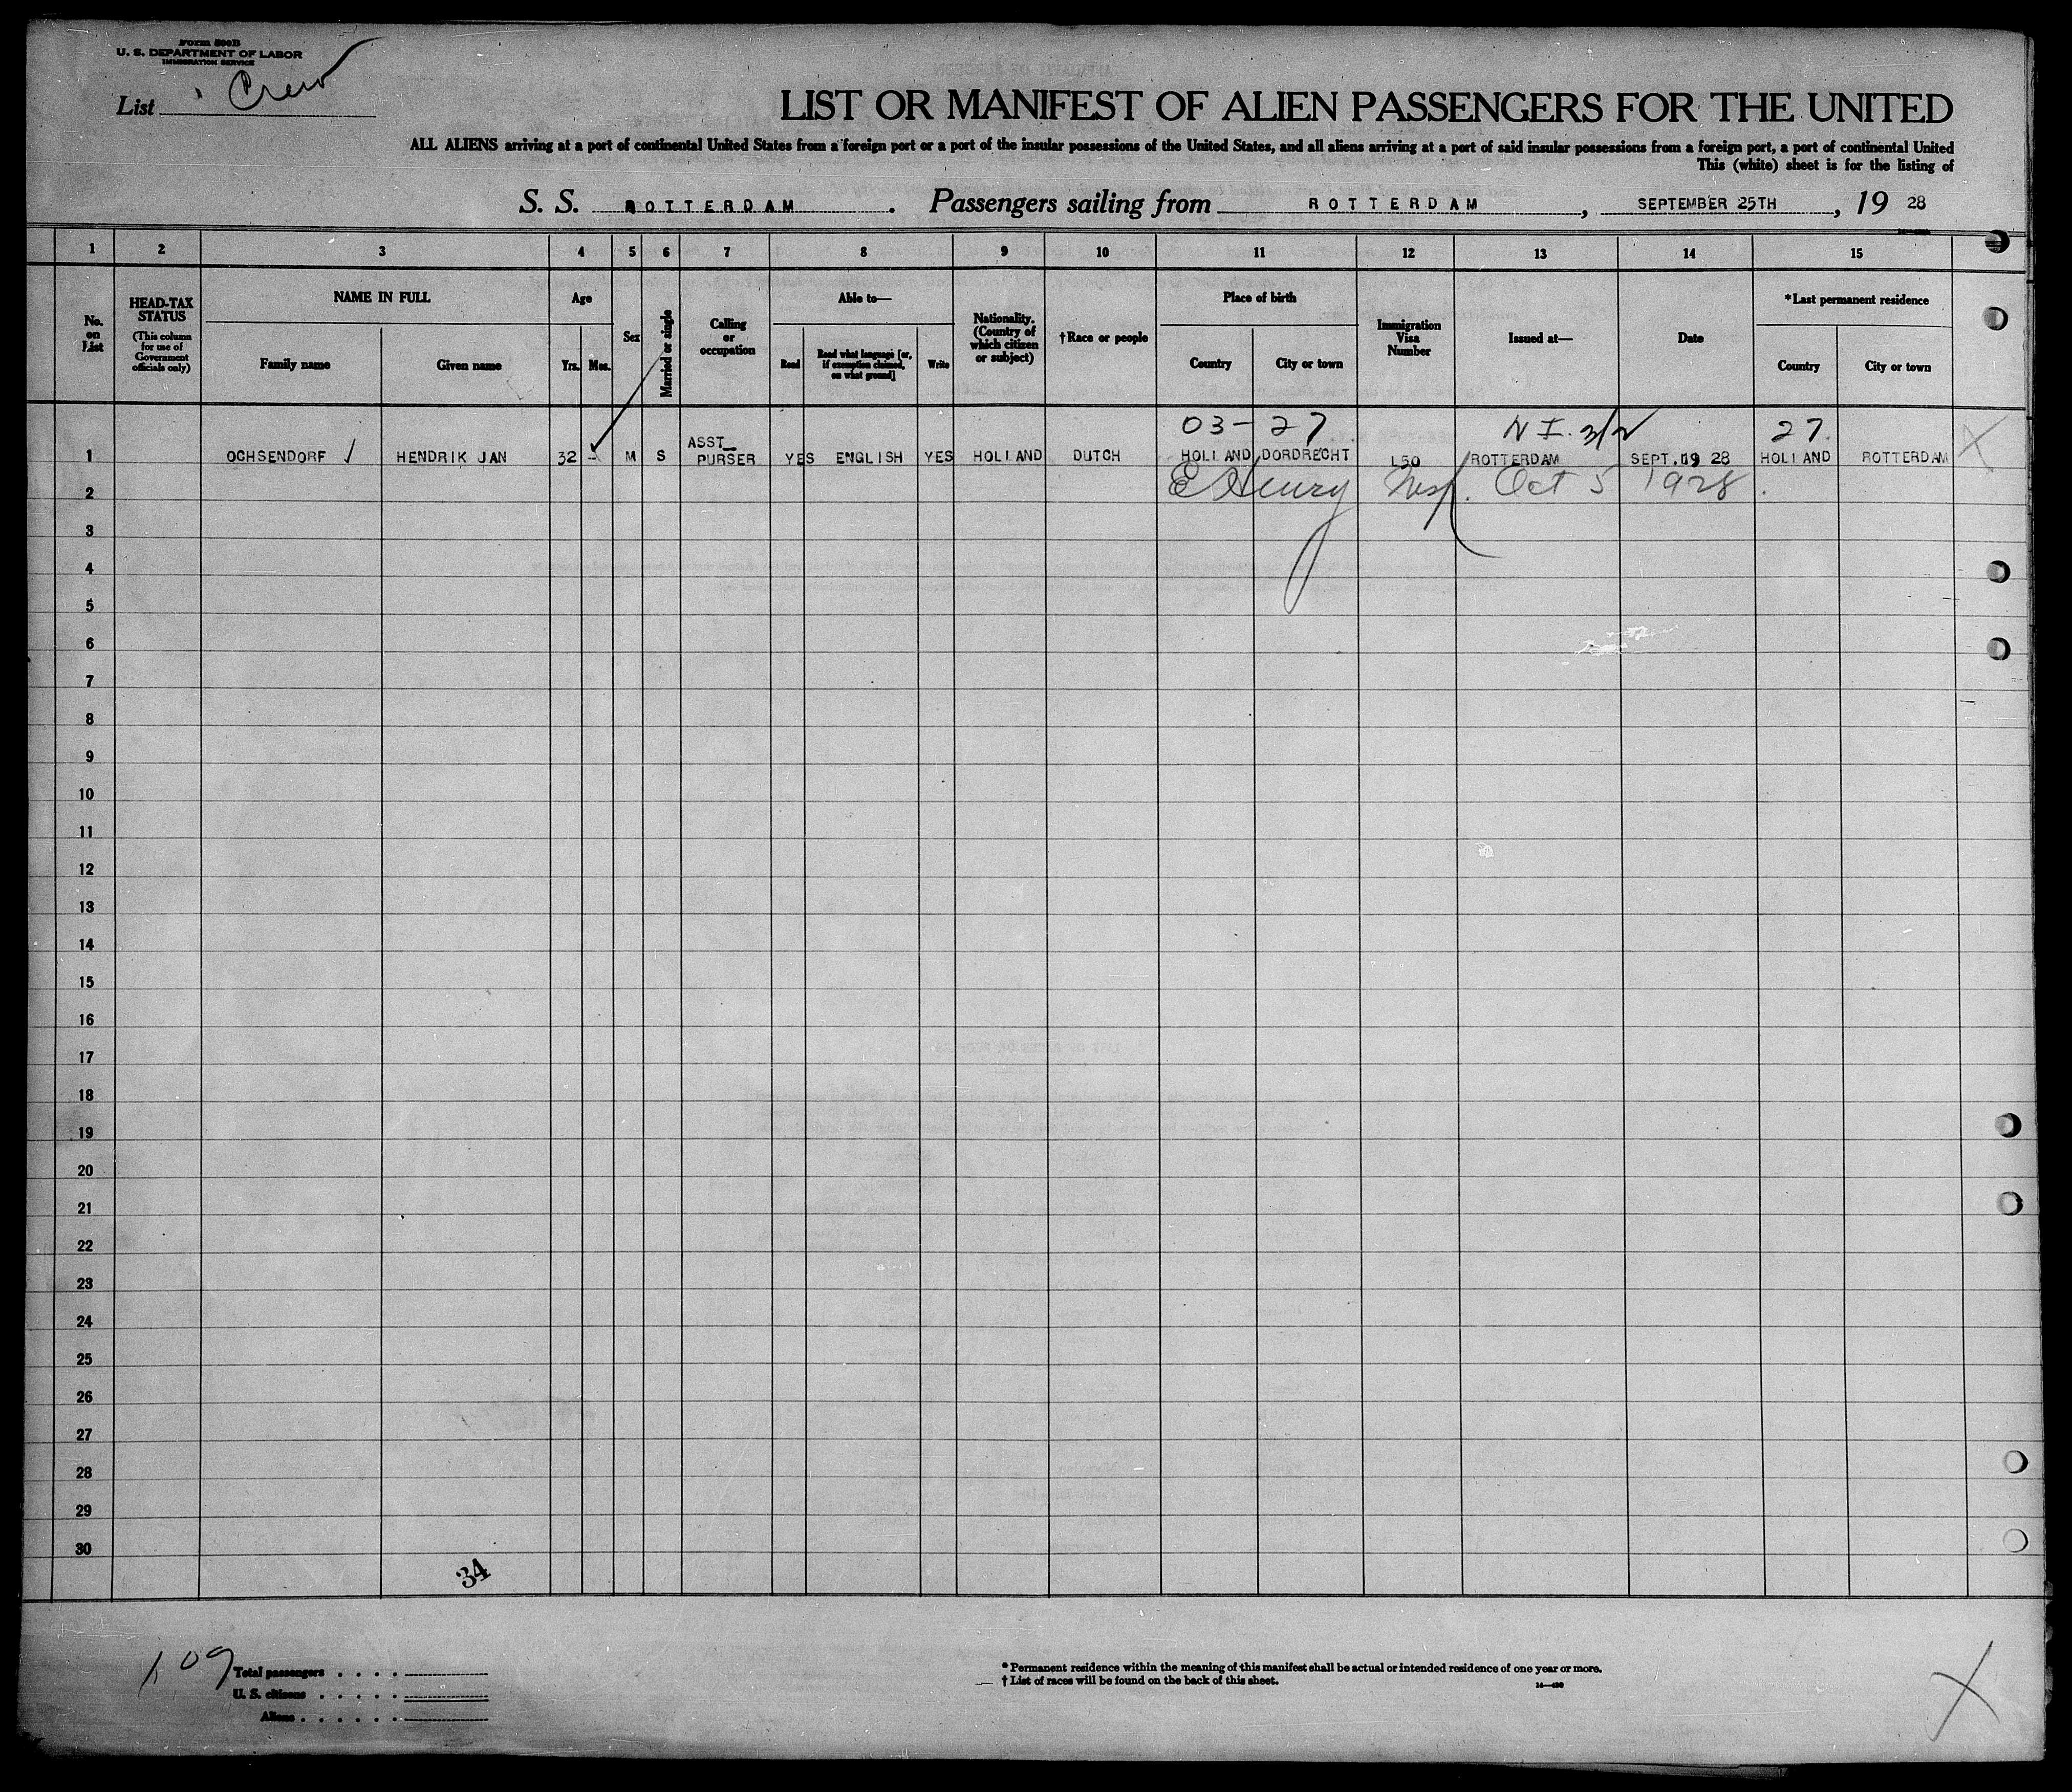 Form 500B
U. S. DEPARTMENT OF LABOR
IMMIGRATION SERVICE
List Crew
LIST OR MANIFEST OF ALIEN PASSENGERS FOR THE UNITED
ALL ALIENS arriving at a port of continental United States from a foreign port or a port of the insular possessions of the United States, and all aliens arriving at a port of said insular possessions from a foreign port, a port of continental United
This (white) sheet is for the listing of
S. S. ROTTERDAM. Passengers sailing from ROTTERDAM, SEPTEMBER 25TH, 19 28
1 2 3 4 5 6 7 8 9 10 11 12 13 14 15
No. on List
HEAD-TAX STATUS
(This column for use of Government officials only)
NAME IN FULL
Family name
Given name
Age
Yrs.
Mos.
Sex
Married or single
Calling or occupation
Able to—
Read
Read what language [or, if exemption claimed, on what ground]
Write
Nationality. (Country of which citizen or subject)
†Race or people
Place of birth
Country
City or town
Immigration Visa Number
Issued at—
Date
*Last permanent residence
Country
City or town
03- 27 N I. 3/2 27.
1 OCHSENDORF HENDRIK JAN 32 - M S ASST PURSER YES ENGLISH YES HOLLAND DUTCH HOLLAND DORDRECHT 150 ROTTERDAM SEPT. 19 28 HOLLAND ROTTERDAM X
2 E Henry Insp. Oct 5 1928.
3
4
5
6
7
8
9
10
11
12
13
14
15
16
17
18
19
20
21
22
23
24
25
26
27
28
29
30
34
109
Total passengers . . . .
U. S. citizens . . . . .
Aliens . . . . . .
* Permanent residence within the meaning of this manifest shall be actual or intended residence of one year or more.
† List of races will be found on the back of this sheet.
X